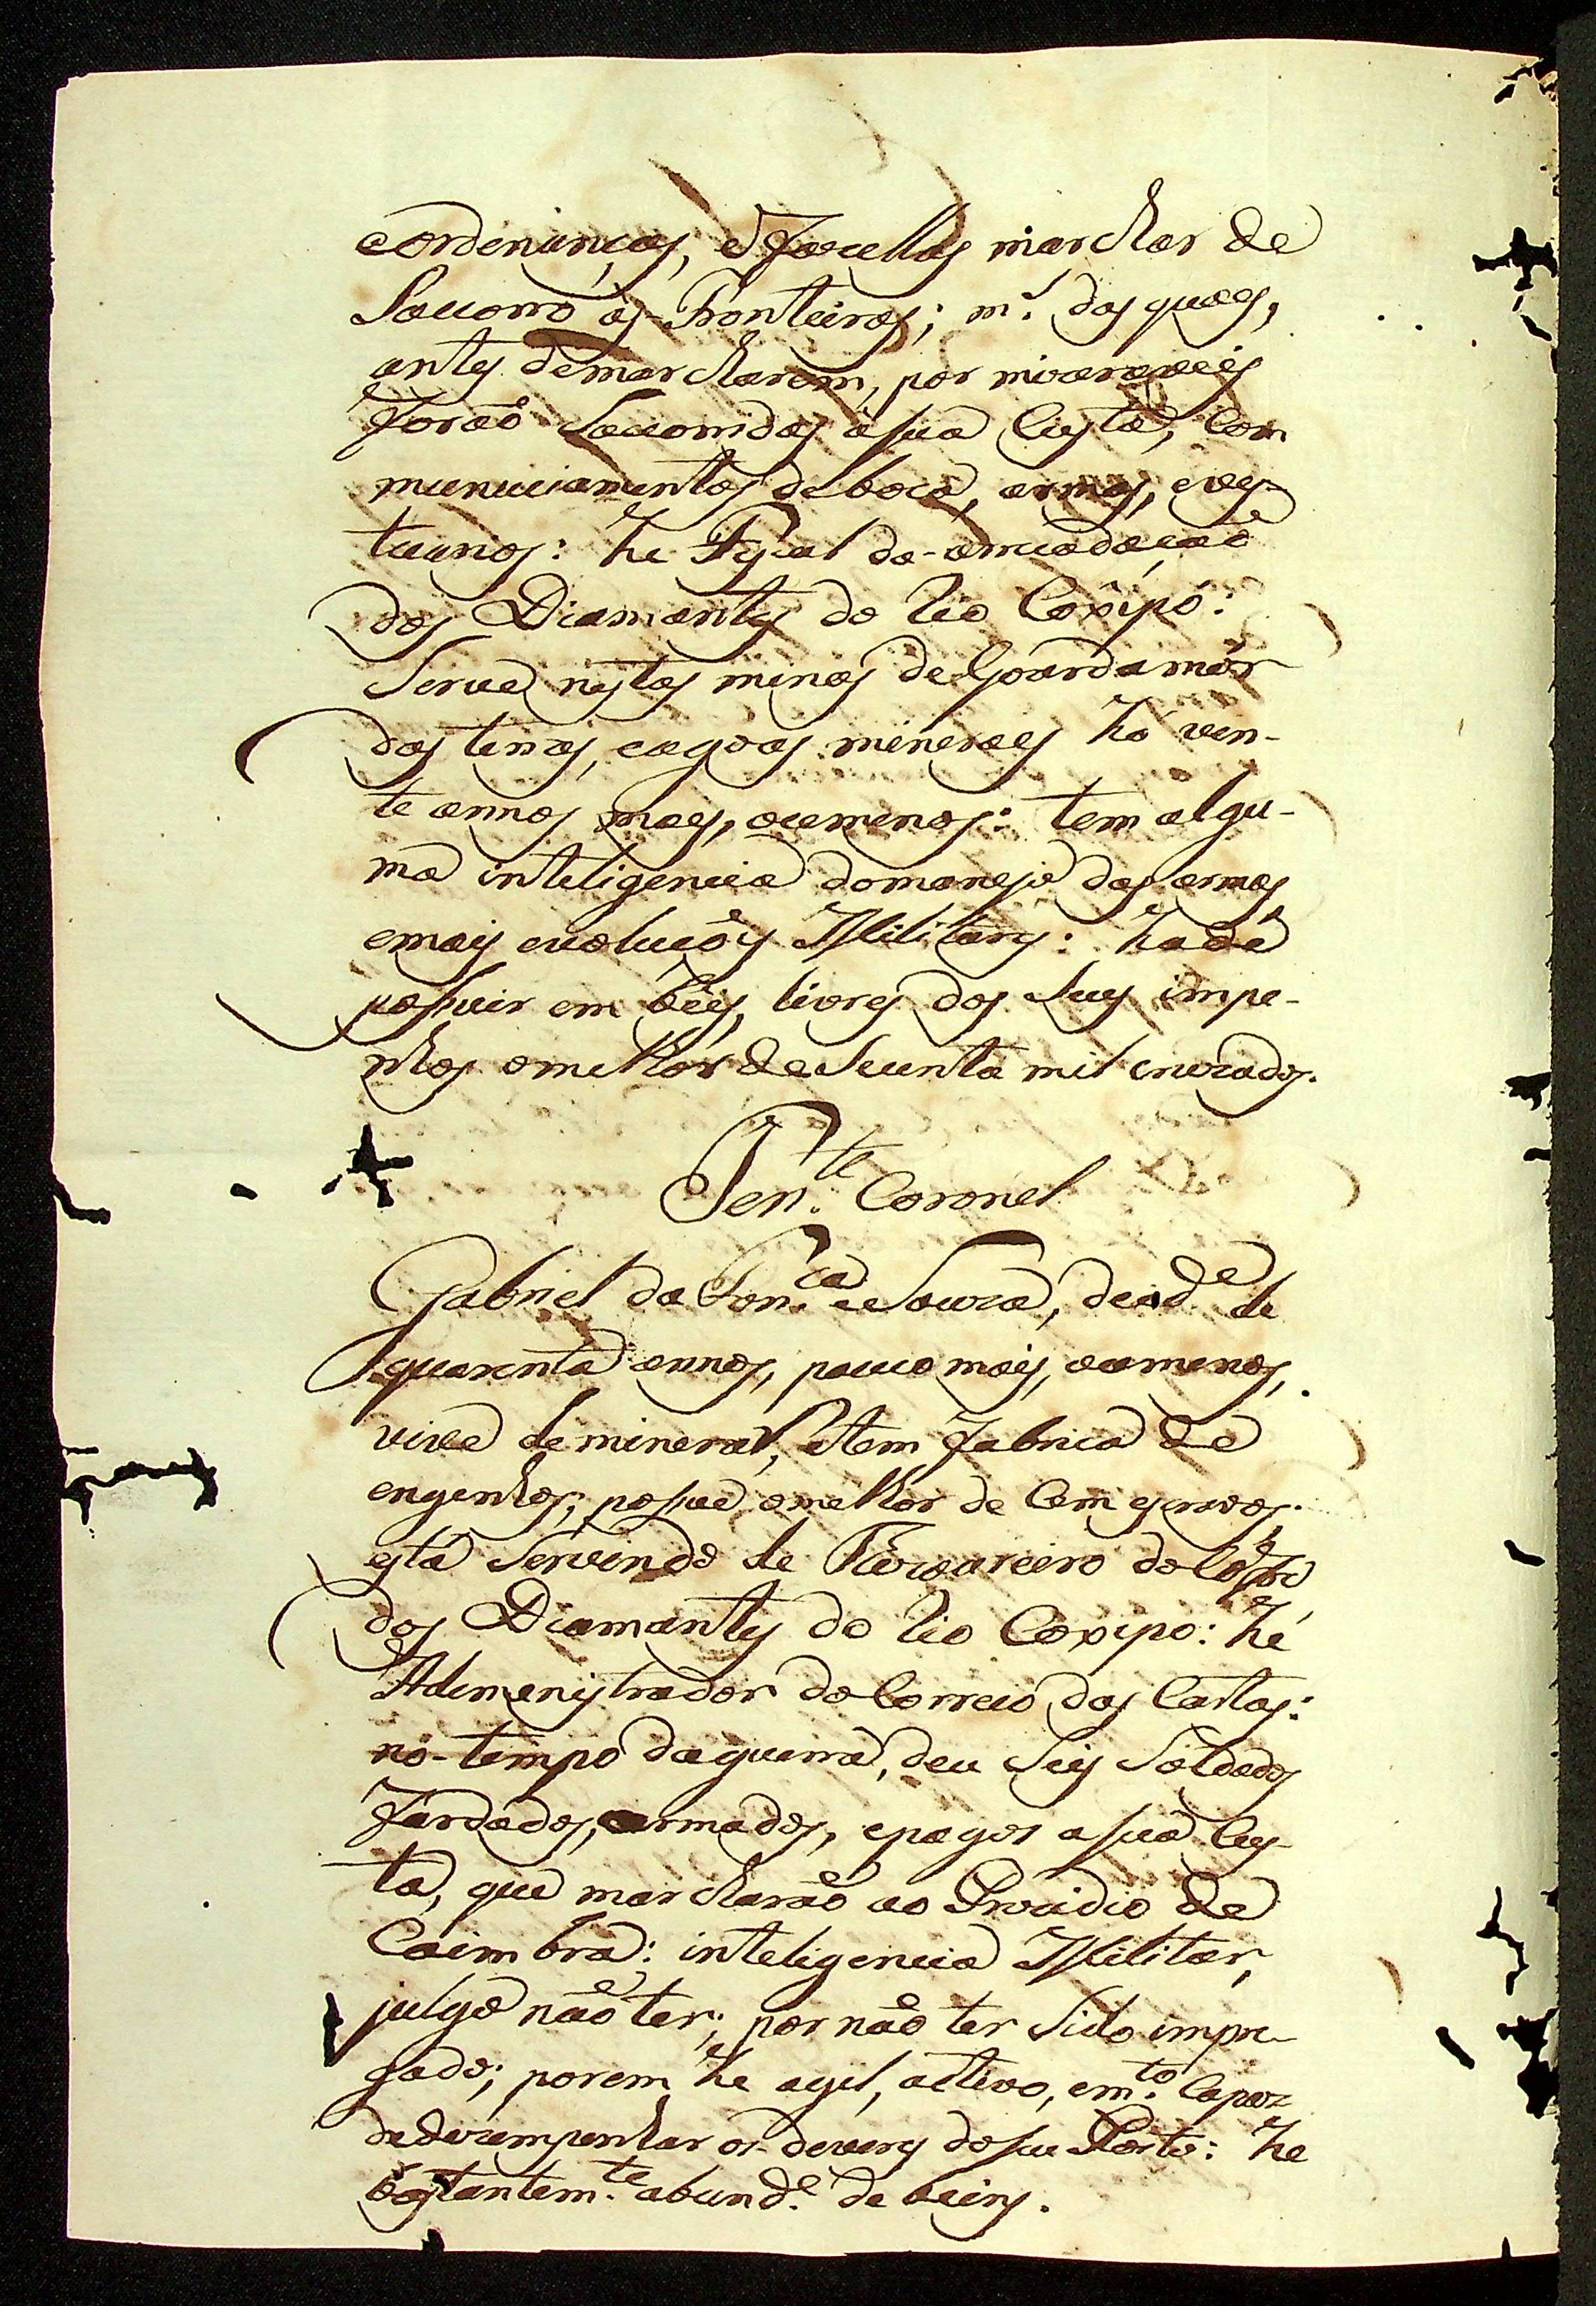 eordenanças, efazellas marchar de
Socorro ás Fronteiras; m.s das quaes,
antes demarcharem, por mizaraveis
forão Socorridas ásua Custa, Com
municiamentos deboca, armas, eves-
tuarios: he Fiscal da arecadação
dos Diamantes do Rio Coxipó:
Serve nestas minas deGoardamór
das terras, eagoas mineraes há vin-
te annos mais, oumenos: tem algu-
ma inteligencia domanejo das armas
emais evoluçoẽs Militares: hade
posuir em béis, livres dos Seus impe-
nhos omelhor de Secenta mil cruzados.
Ten.te Coronel
Gabriel da Fon.ca eSouza, deid.e de
quarenta annos, pouco mais, oumenos,
vive deminerar, etem fabrica de
engenhos; posue omelhor de Cem escravos.
está Servindo de Tezoureiro do Cofre
dos Diamantes do Rio Coxipo: hé
Ademenistrador do Correio das Cartas:
no tempo daguerra, deu Seis Soldados
fardados, armados, epagos asua Cus-
ta, que marcharão ao Prezidio de
Coimbra: inteligencia Militar,
julgo não ter; por não ter Sido impre-
gado; porem he agil, activo, em.to Capaz
dedezempenhar os deveres doseu Posto: he
bastantem.te abund.e de beins.